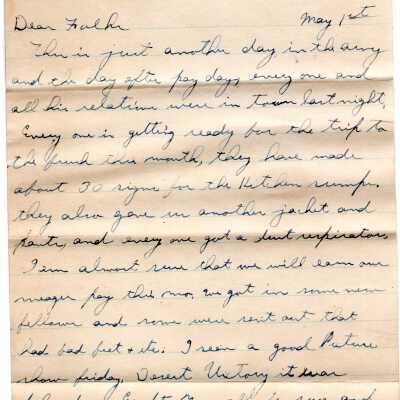 Dear Folks
May 1st
This is just another day in the army
and the day after pay day, every one and
all his relations were in town last night,
Every one is getting ready for the trip to
the  this month, they have made
about 30 signs for the Kitchen  .
they also gave us another jacket and
pants, and every one got a dust respirator.
I am almost sure that we will earn our
meager pay this mo. We got in some new
fellows and some were sent out that
had bad feet + etc. I seen a good Picture
show friday, Desert Victory it was